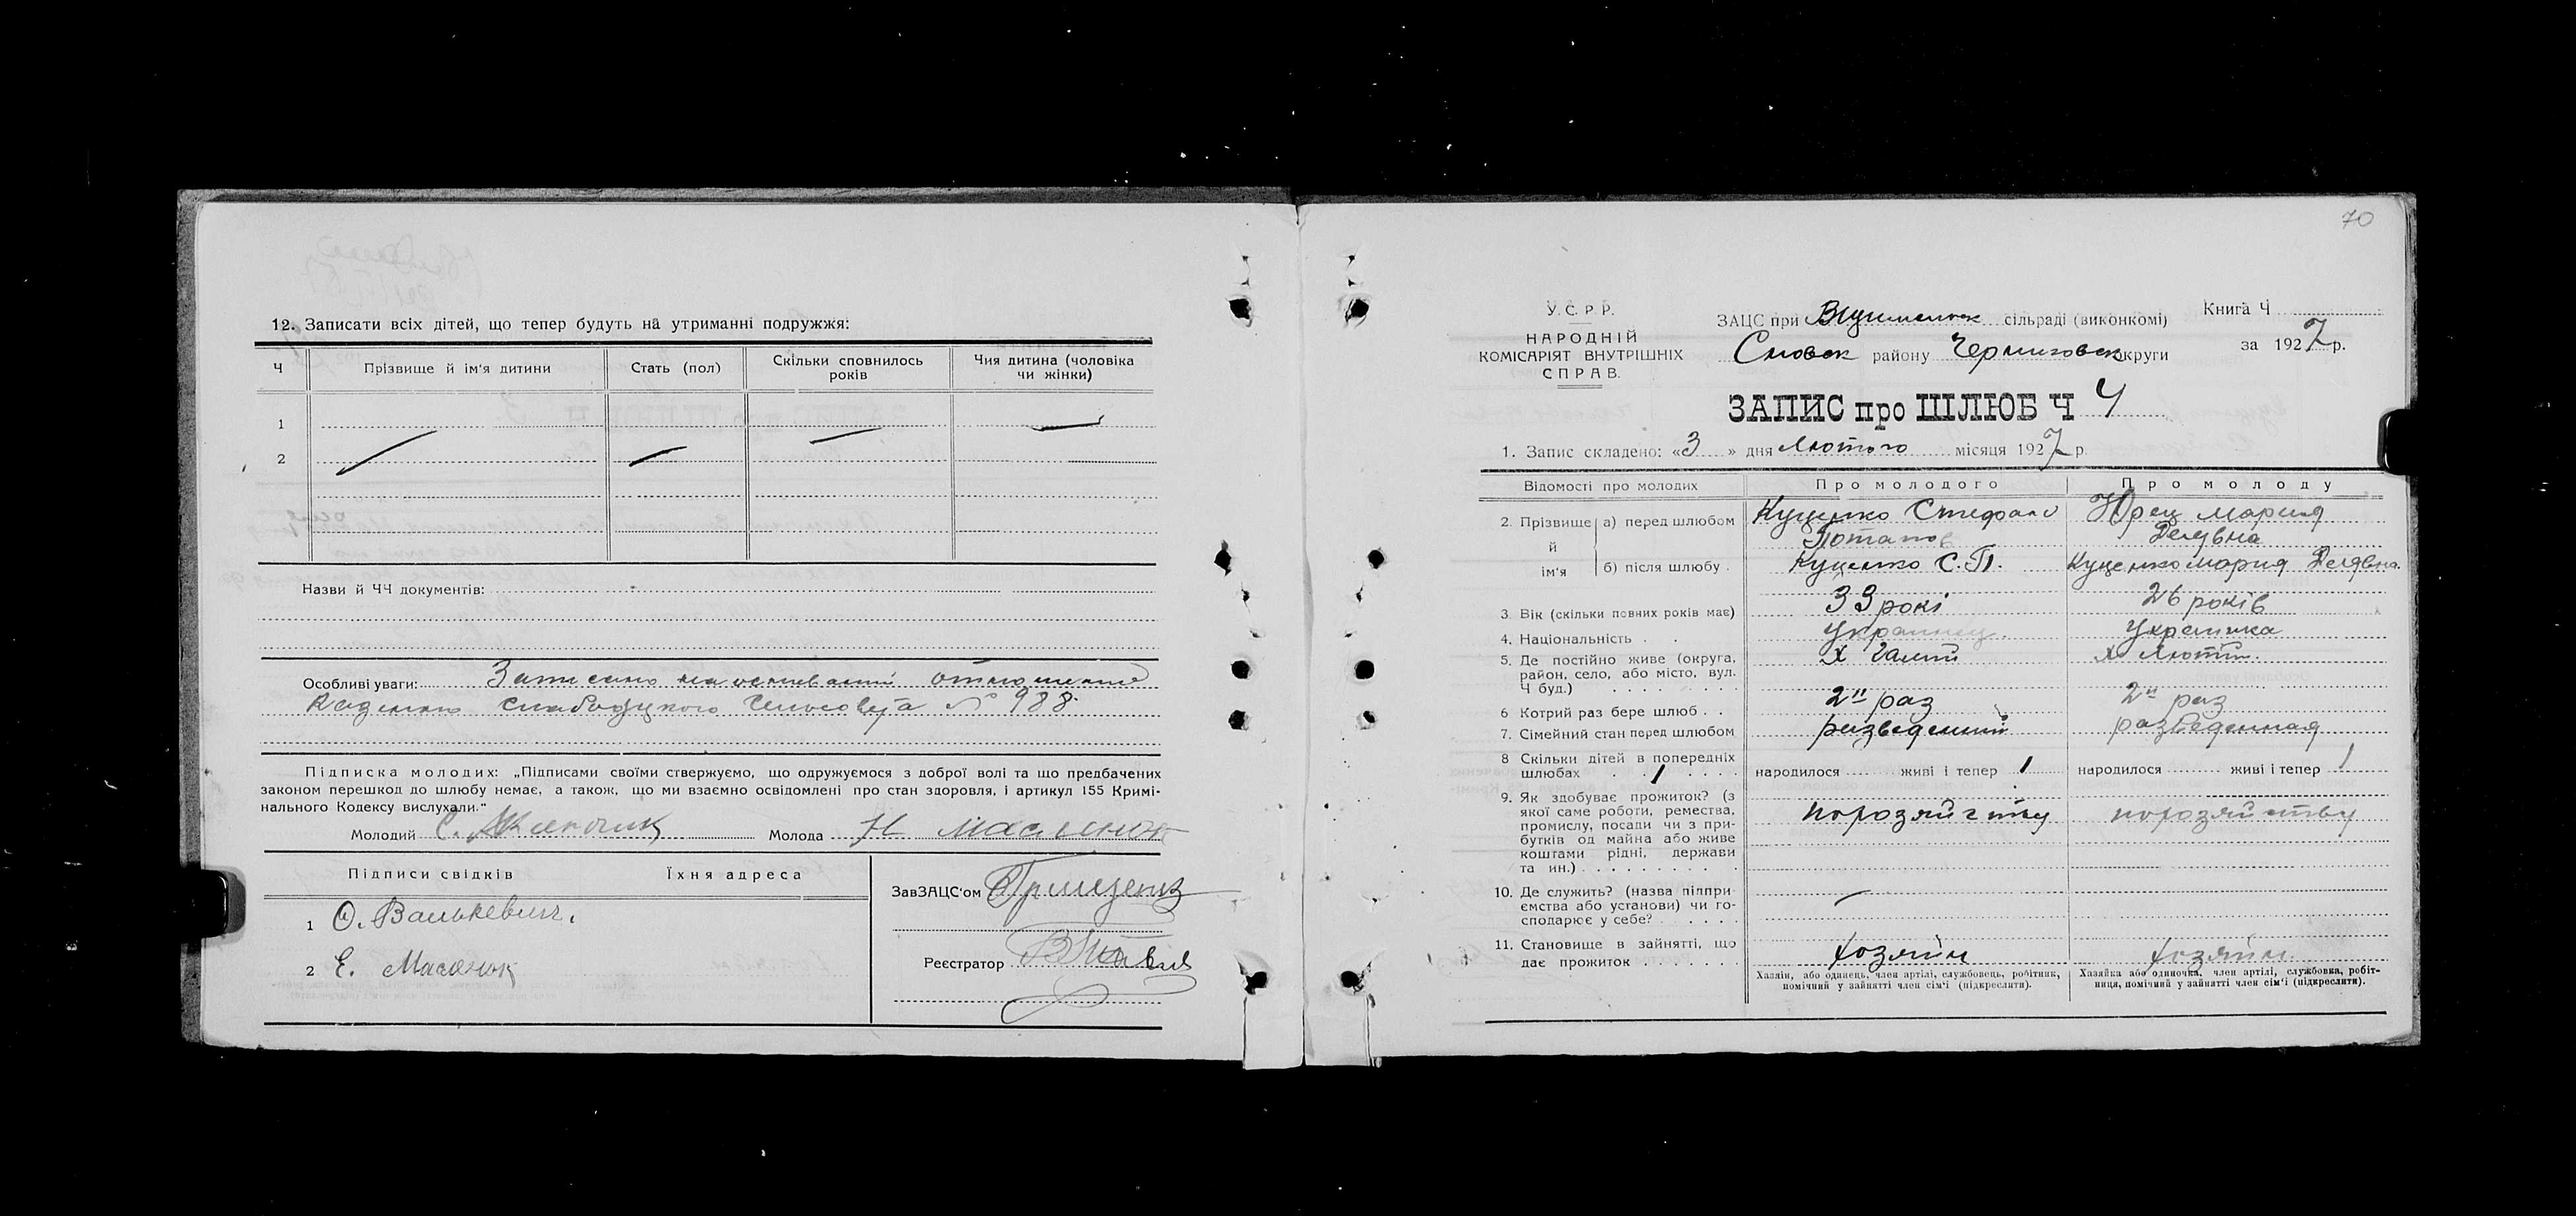 12. Записати всіх дітей, що тепер будуть на утриманні подружжя:
Ч Прізвище й ім'я дитини Стать (пол) Скільки сповнилось років Чия дитина (чоловіка чи жінки)
1
2
Назви й ЧЧ документів:
Особливі уваги: Записано на основании
сельсовета № 988
Підписка молодих: „Підписами своїми стверджуємо, що одружуємося з доброї волі та що предбачених
законом перешкод до шлюбу немає, а також, що ми взаємно освідомлені про стан здоровля, і артикул 155 Кримі-
нального Кодексу вислухали."
Молодий С. Молода
Підписи свідків Їхня адреса
1 О. Ванькевич.
2 Е. Масенюк
ЗавЗАЦС'ом Грищенко
Реєстратор
70
У. С. Р. Р.
НАРОДНІЙ
КОМІСАРІЯТ ВНУТРІШНІХ
СПРАВ.
ЗАЦС при сільраді (виконкомі)
Сновск району Черниговск округи
Книга Ч
за 1927 р.
ЗАПИС про ШЛЮБ Ч 4
1. Запис складено: «3» дня Лютого місяця 1927 р.
Відомості про молодих Про молодого Про молоду
2. Прізвище й ім'я а) перед шлюбом Куценко Стефан Потапов Юрец Мария
б) після шлюбу. Куценко С. П. Куценко Мария
3. Вік (скільки повних років має) 33 рокі 26 років
4. Національність . . Украинец. Украинка
5. Де постійно живе (округа,
район, село, або місто, вул.
Ч буд.) . . . . .
6 Котрий раз бере шлюб . . 2й раз 2й раз
7. Сімейний стан перед шлюбом разведений разведенная
8 Скільки дітей в попередніх
шлюбах 1 народилося живі і тепер 1 народилося живі і тепер 1
9. Як здобуває прожиток? (з
якої саме роботи, ремества,
промислу, посади чи з при-
бутків од майна або живе
коштами рідні, держави
та ин.) . . . . . . . . .
10. Де служить? (назва підпри-
ємства або установи) чи го-
сподарює у себе? . . . . .
11. Становище в зайнятті, що
дає прожиток . . . . . . . хозяїн хозяїн
Хазяїн, або одинець, член артілі, службовець, робітник,
помічний у зайнятті член сім'ї (підкреслити).
Хазяйка або одиночка, член артілі, службовка, робіт-
ниця, помічний у зайнятті член сім'ї (підкреслити).